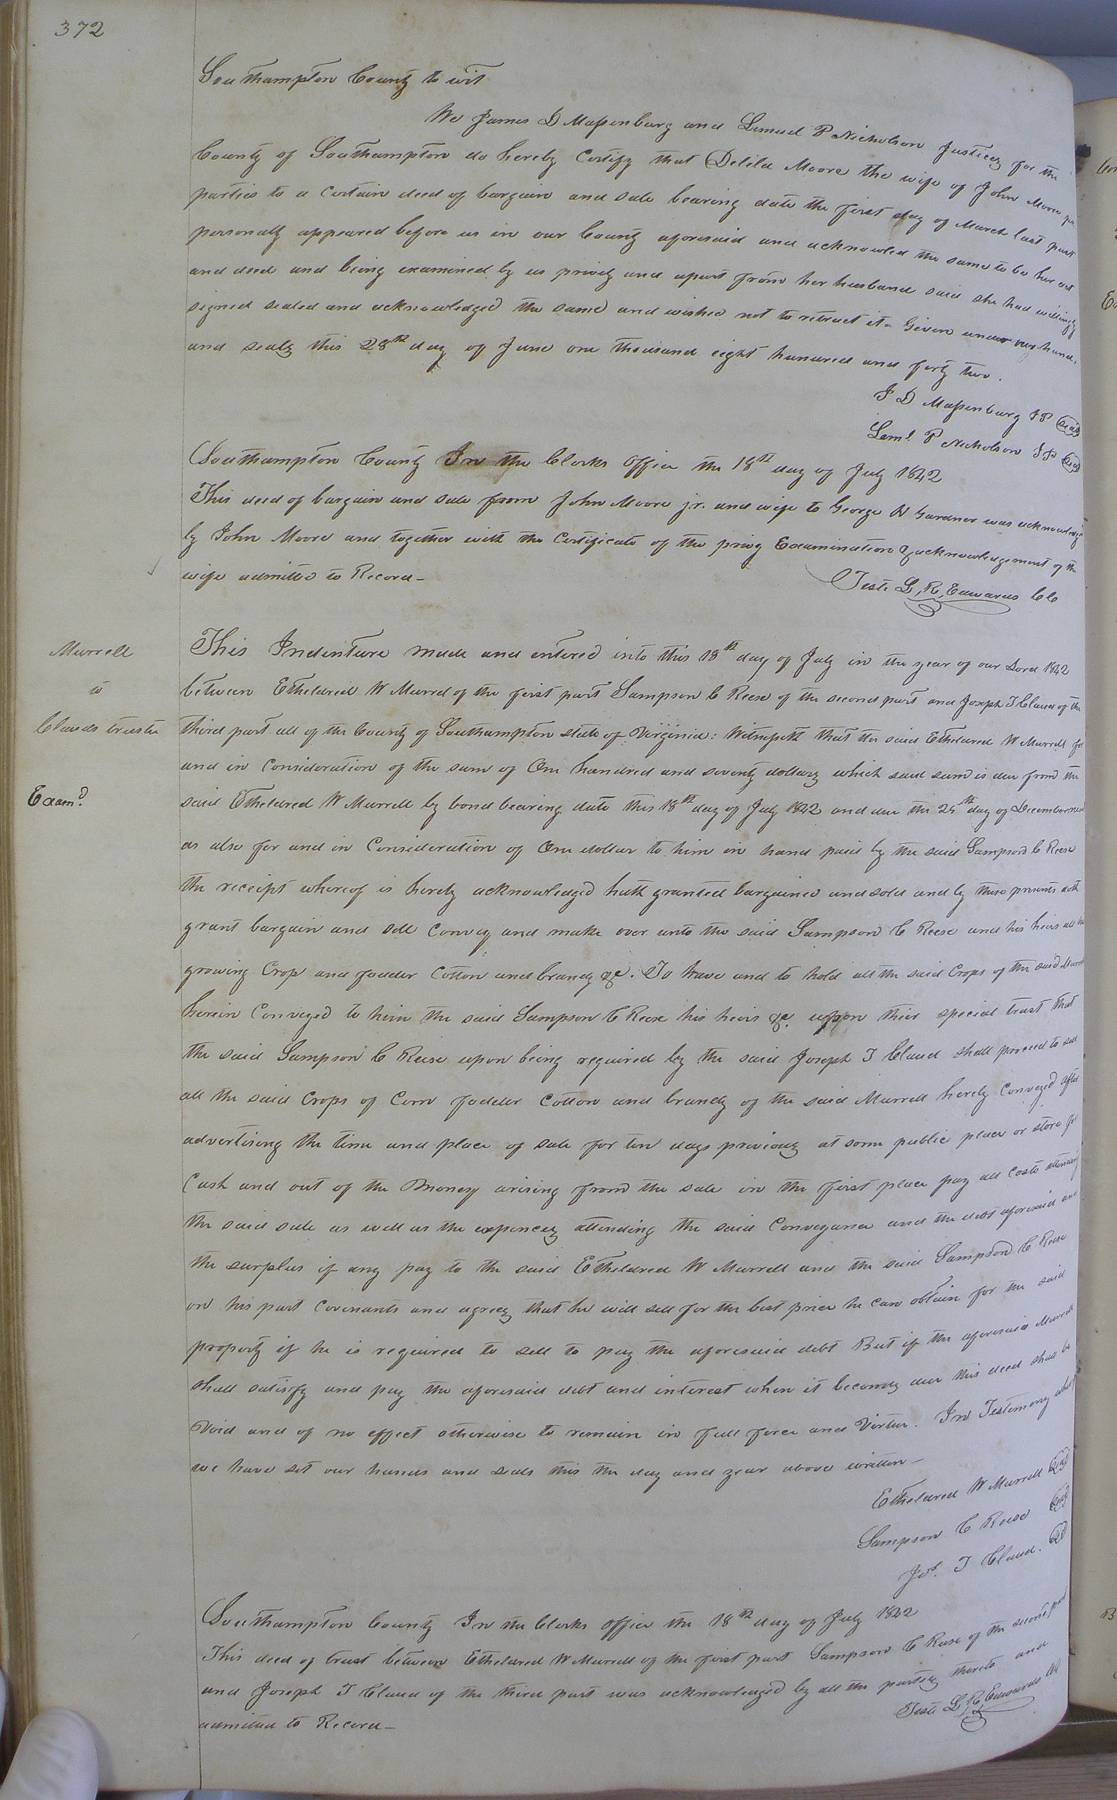 372
Southampton County to wit
We James D Massenburg and Lemuel P Nicholson Justices for the
County of Southampton do hereby Certify that Delila Moore the wife of John Moore jr
parties to a Certain deed of bargain and sale bearing date the first day of March last past
personally appeared before us in our County aforesaid and acknowled the same to be her act
and deed and being examined by us privily and apart from her husband said she had willingly
signed sealed and acknowledged the same and wished not to retract it. Given under our hands
and seals this 28th day of June one thousand eight hundred and forty two.
J D Massenburg JP Seal
Leml P Nicholson JP Seal
Southampton County In the Clerks Office the 18th day of July 1842
This deed of bargain and sale from John Moore jr. and wife to George N Gardner was acknowledged
by John Moore and together with the Certificate of the privy Examination & acknowledgement of the
wife admitted to Record –
Teste L, R, Edwards Clk
Murrell
to
Clauds trustee
Examd.
This Indenture made and entered into this 18th day of July in the year of our Lord 1842
between Etheldred W Murrell of the first part Sampson C Reese of the second part and Joseph T Claud of the
third part all of the County of Southampton state of Virginia: Witnesseth that the said Etheldred W Murrell for
and in Consideration of the sum of One hundred and seventy dollars which said sum is due from the
said Etheldred W Murrell by bond bearing date this 18th day of July 1842 and due the 25th day of December next
as also for and in Consideration of One dollar to him in hand paid by the said Sampson C Reese
the receipt whereof is hereby acknowledged hath granted bargained and sold and by these presents doth
grant bargain and sell Convey and make over unto the said Sampson C Reese and his heirs all the
growing Crop and fodder Cotton and brandy &c. To have and to hold all the said Crops of the said Murrell
herein Conveyed to him the said Sampson C Reese his heirs &c. upon their special trust that
the said Sampson C Reese upon being required by the said Joseph T Claud shall proceed to sell
all the said Crops of Corn fodder Cotton and brandy of the said Murrell hereby Conveyed after
advertising the time and place of sale for ten days previous at some public place or store for
Cash and out of the Money arising from the sale in the first place pay all Costs attending
the said sale as well as the expences attending the said Conveyance and the debt aforesaid and
the surplus if any pay to the said Etheldred W Murrell and the said Sampson C Reese
on his part Covenants and agrees that he will sell for the best price he can obtain for the said
property if he is required to sell to pay the aforesaid debt But if the aforesaid Murrell
shall satisfy and pay the aforesaid debt and interest when it becomes due this deed shall be
Void and of no effect otherwise to remain in full force and Virtue. In Testimony whereof
we have set our hands and seals this the day and year above written –
Etheldred W Murrell Seal
Sampson C Reese Seal
Jos. T Claud. Seal
Southampton County In the Clerks Office the 18th day of July 1842
This deed of trust between Etheldred W Murrell of the first part Sampson C Reese of the second part
and Joseph T Claud of the third part was acknowledged by all the parties thereto and
admitted to Record –
Teste L, R, Edwards Clk